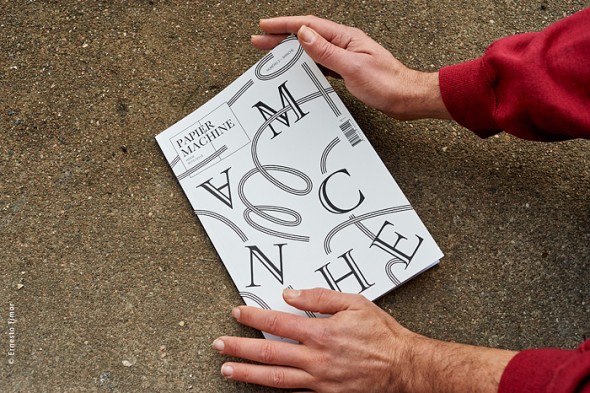 PAPIER
MACHINE
M
A
C
N
H
E
© Ernesto Timor